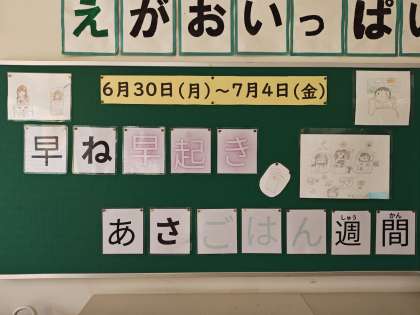 えがおいっぱい
6月30日(月)～7月4日(金)
早ね早起き
あさごはん週間
しゅう かん